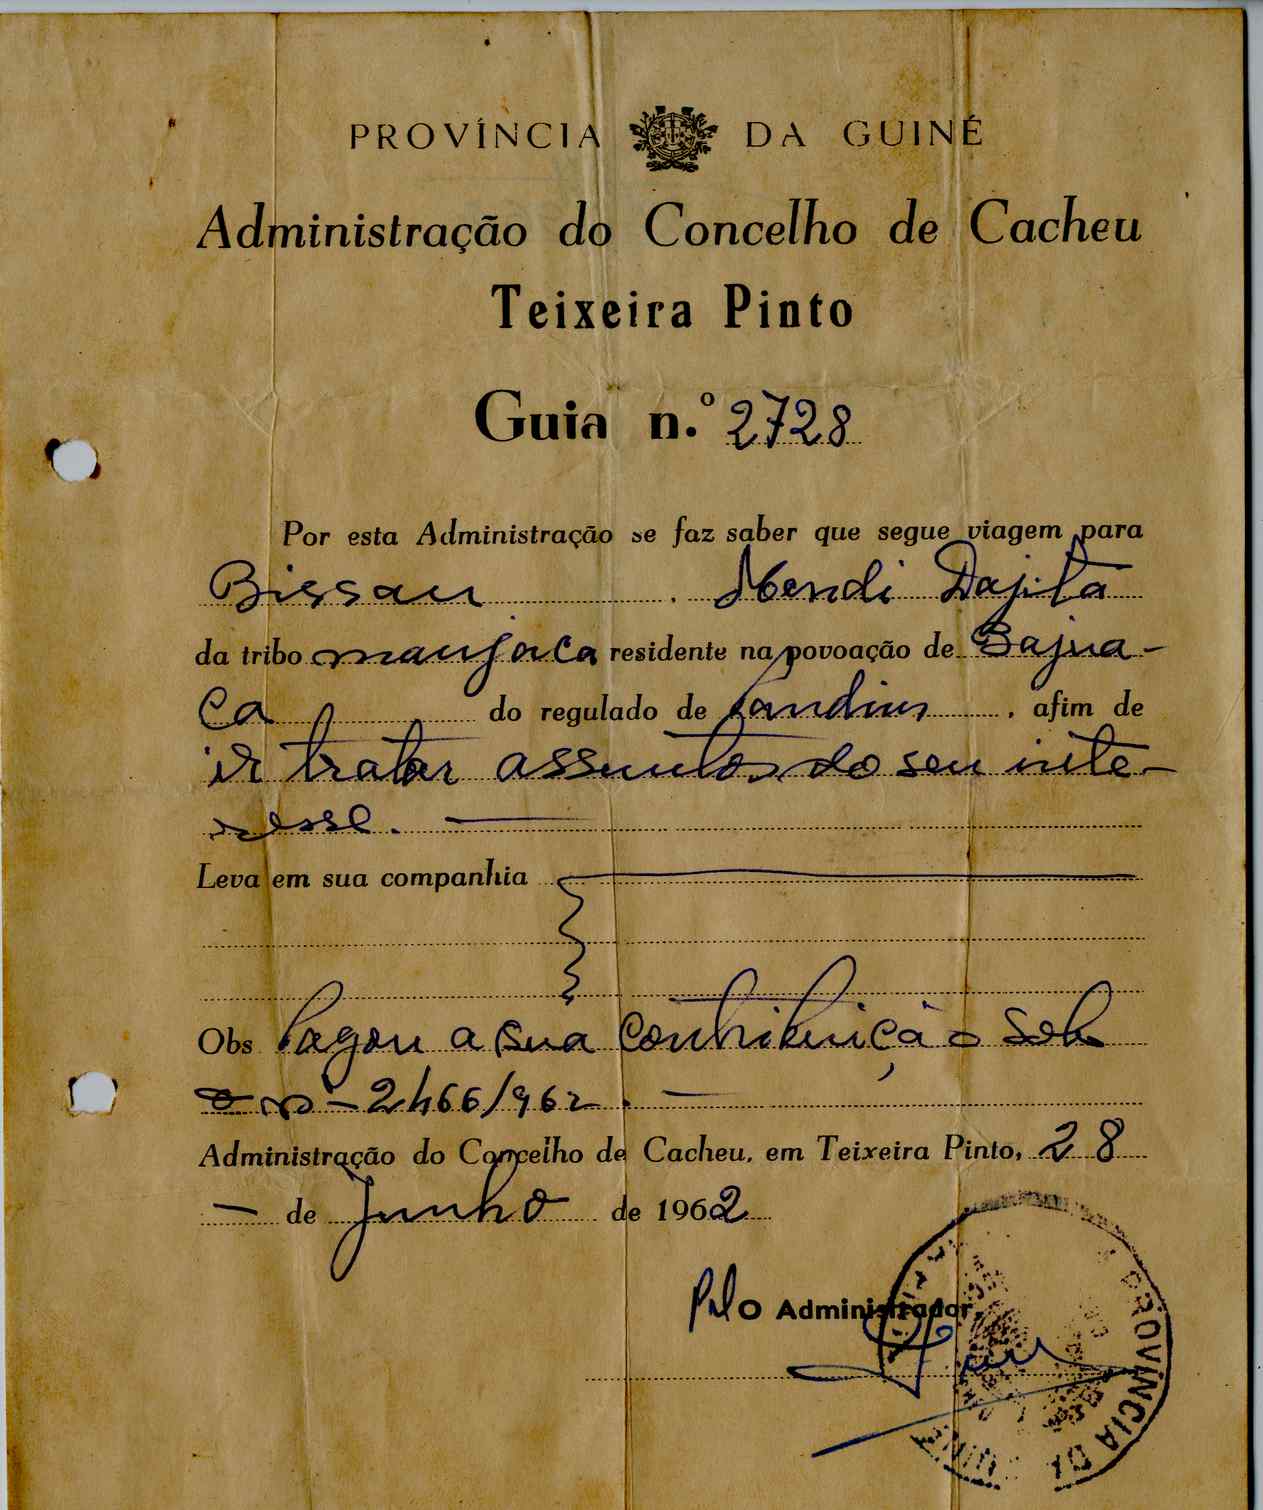 PROVÍNCIA DA GUINÉ
Administração do Concelho de Cacheu
Teixeira Pinto
Guia n.º 2728
Por esta Administração se faz saber que segue viagem para
Bissau Mendi Dajita
da tribo manjaca residente na povoação de Bajua-
ca do regulado de , afim de
ir tratar assuntos do seu inte-
resse. —
Leva em sua companhia
Obs Pagou a sua contribuição sob
o nº - 2466/962. —
Administração do Concelho de Cacheu, em Teixeira Pinto, 28
— de Junho de 1962
Pelo Administrador,
PROVÍNCIA DA GUINÉ